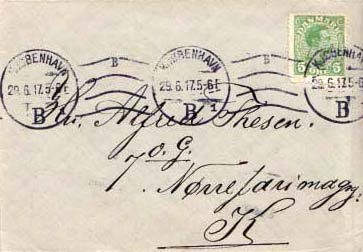 KJØBENHAVN
29.6.17.5-6 E
B
B
KJØBENHAVN
29.6.17.5-6 E
B 1
DANMARK
5 5
ØRE
KJØBENHAVN
29.6.17.5-6 E
B
Hr. Alfred Thesen.
7 o. G.
Nørrefarimagg.
K